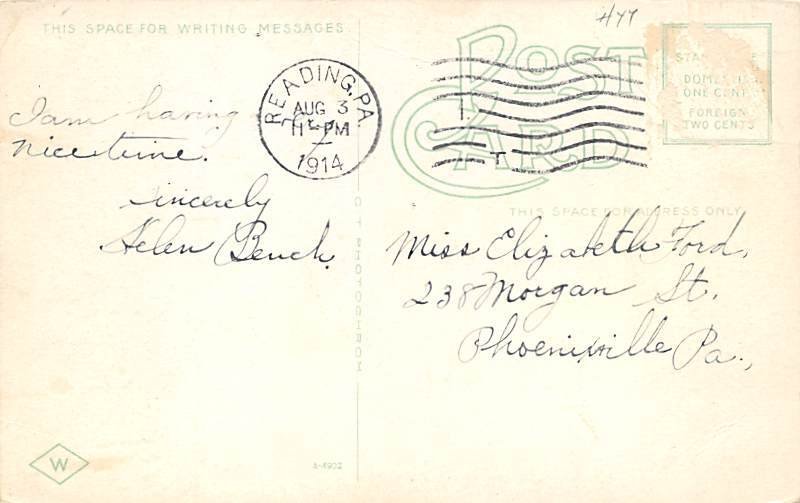 THIS SPACE FOR WRITING MESSAGES
I am having
nice time.
Sincerely
Helen Bench.
READING, PA.
AUG 3
11 PM
1914
H77
POST
CARD
DOMESTIC
ONE CENT
FOREIGN
TWO CENTS
THIS SPACE FOR ADDRESS ONLY
Miss Elizabeth Ford,
238 Morgan St.
Phoenixville Pa.,
W